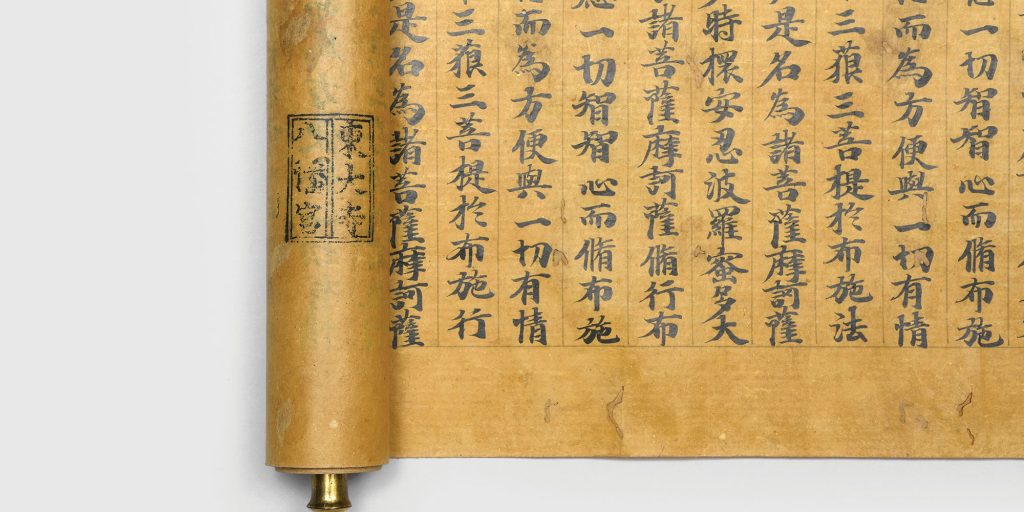 一切智智心而脩布施
而為方便與一切有情
三藐三菩提於布施法
是名為諸菩薩摩訶薩
時擐安忍波羅蜜多大
諸菩薩摩訶薩脩行布
一切智智心而脩布施
而為方便與一切有情
三藐三菩提於布施行
是名為諸菩薩摩訶薩
東大寺
八幡宮